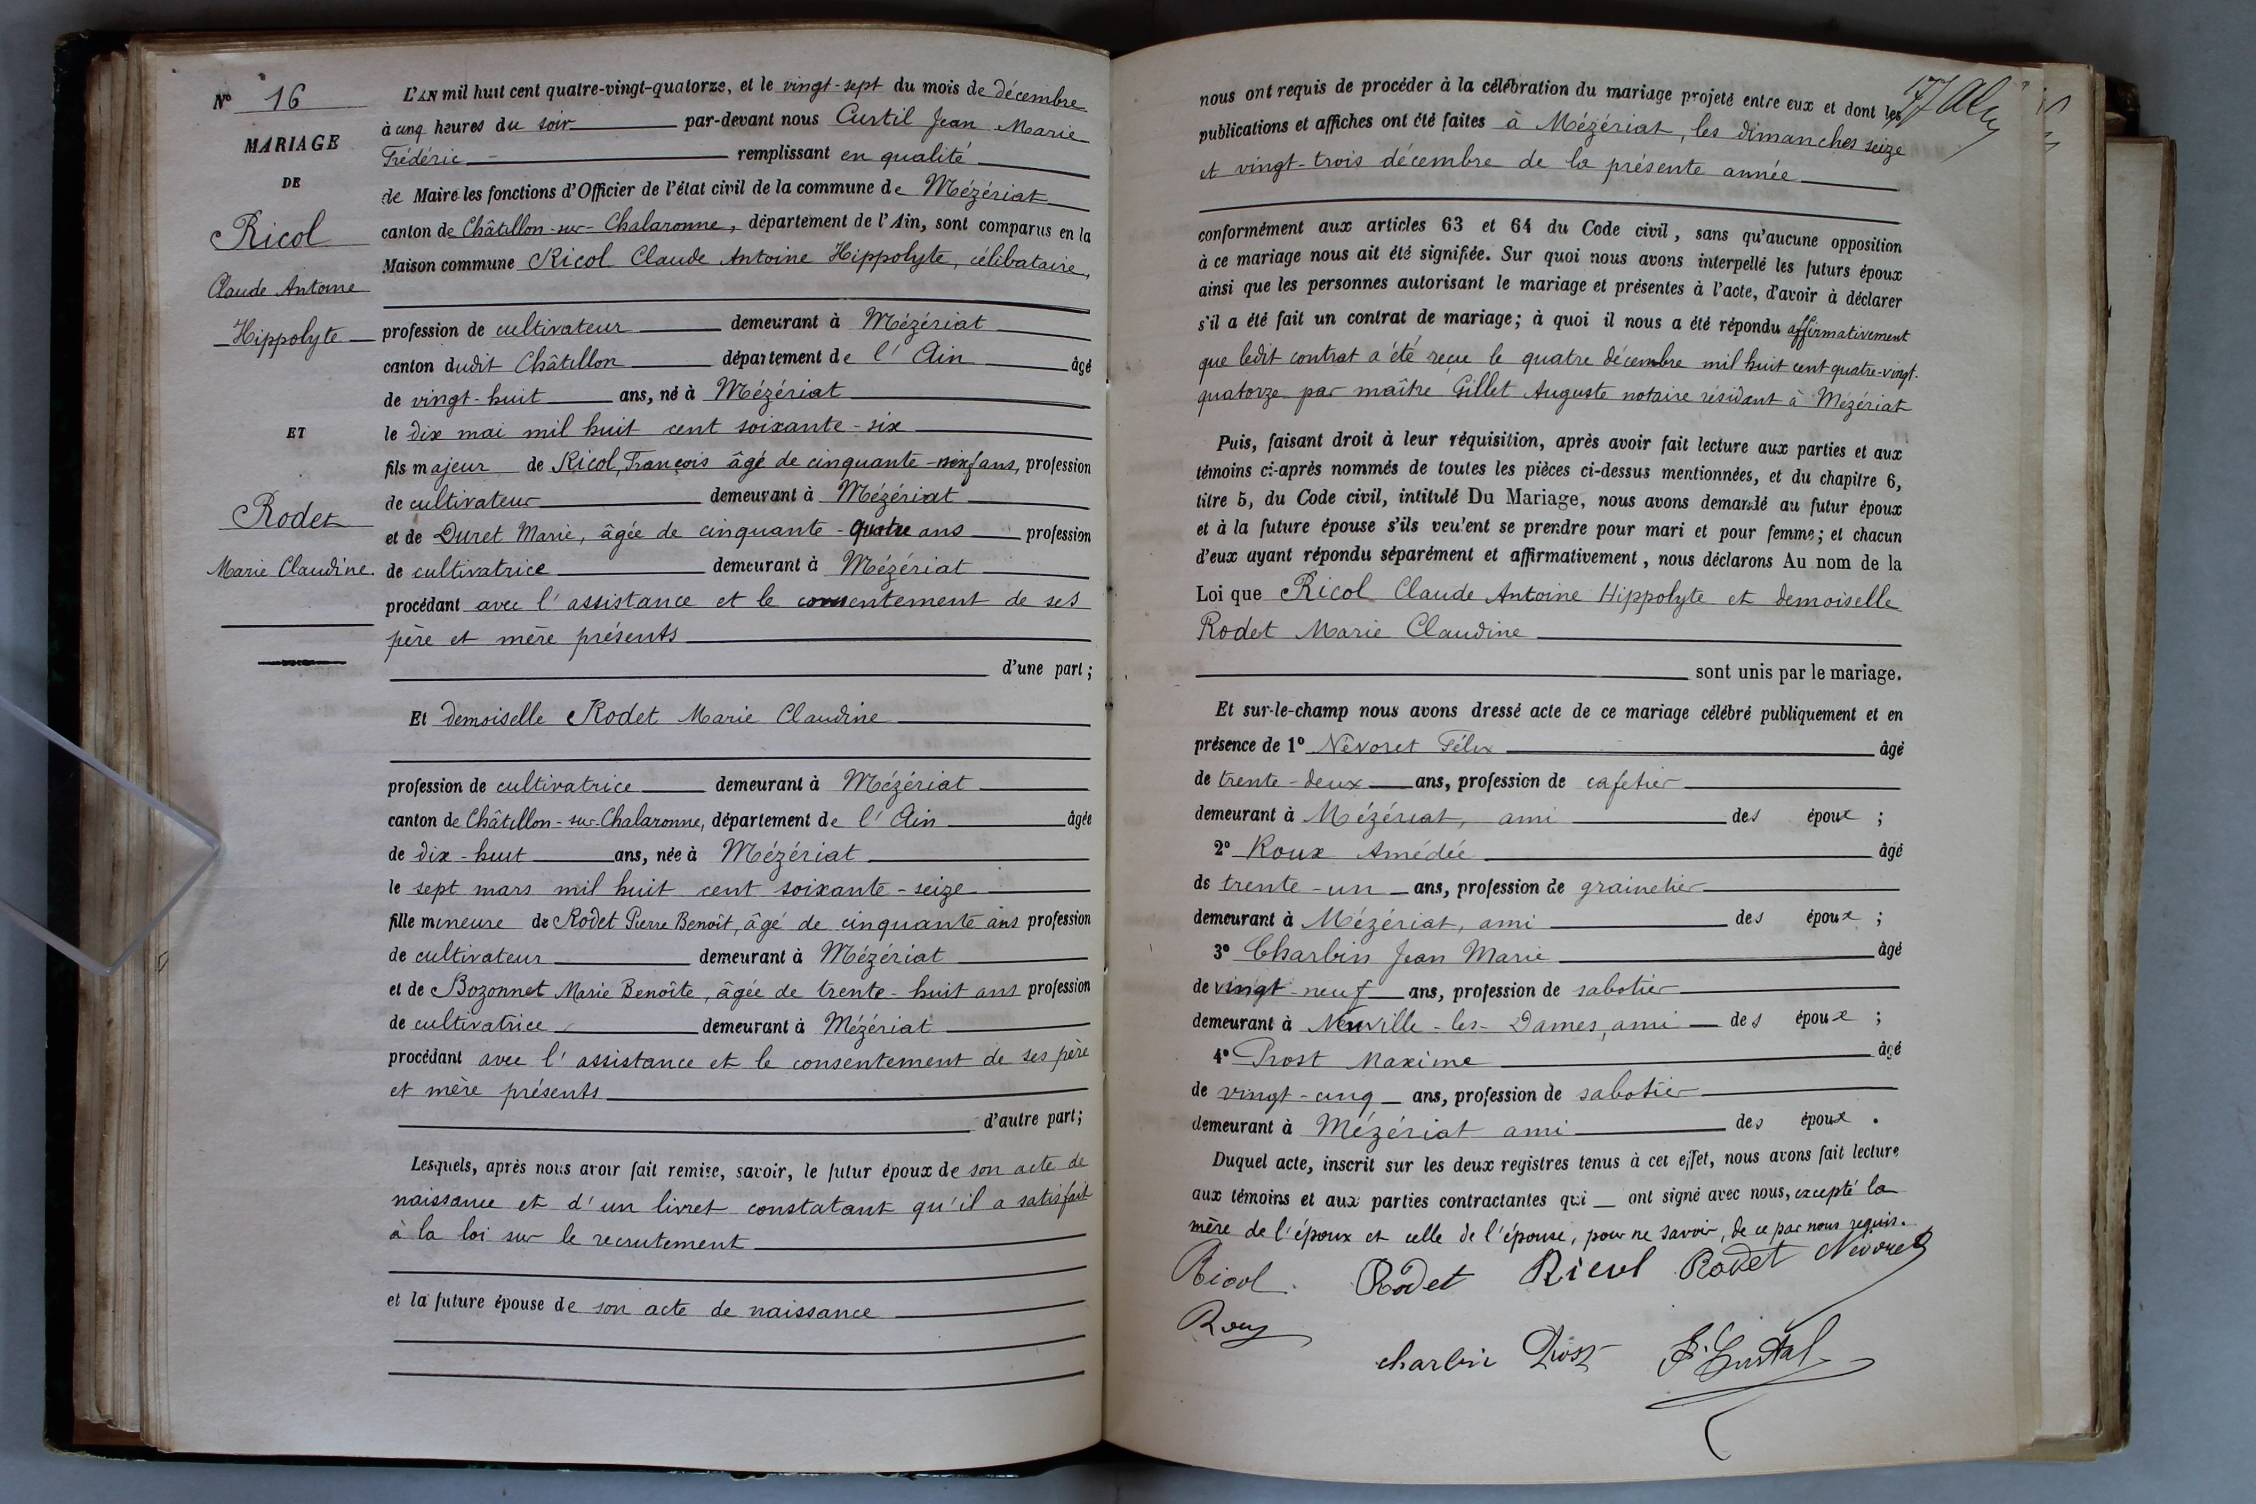 N° 16
MARIAGE
DE
Ricol
Claude Antoine
Hippolyte
ET
Rodet
Marie Claudine.
L'AN mil huit cent quatre-vingt-quatorze, et le vingt-sept du mois de décembre
à cinq heures du soir par-devant nous Curtil Jean Marie
Frédéric remplissant en qualité
de Maire les fonctions d'Officier de l'état civil de la commune de Mézériat
canton de Châtillon-sur-Chalaronne, département de l'Ain, sont comparus en la
Maison commune Ricol Claude Antoine Hippolyte, célibataire,
profession de cultivateur demeurant à Mézériat
canton dudit Châtillon département de l'Ain âgé
de vingt-huit ans, né à Mézériat
le dix mai mil huit cent soixante-six
fils majeur de Ricol, François âgé de cinquante-six ans, profession
de cultivateur demeurant à Mézériat
et de Duret Marie, âgée de cinquante-quatre ans profession
de cultivatrice demeurant à Mézériat
procédant avec l'assistance et le consentement de ses
père et mère présents
d'une part;
Et demoiselle Rodet Marie Claudine
profession de cultivatrice demeurant à Mézériat
canton de Châtillon-sur-Chalaronne, département de l'Ain âgée
de dix-huit ans, née à Mézériat
le sept mars mil huit cent soixante-seize
fille mineure de Rodet Pierre Benoît, âgé de cinquante ans profession
de cultivateur demeurant à Mézériat
et de Bozonnet Marie Benoîte, âgée de trente-huit ans profession
de cultivatrice demeurant à Mézériat
procédant avec l'assistance et le consentement de ses père
et mère présents
d'autre part;
Lesquels, après nous avoir fait remise, savoir, le futur époux de son acte de
naissance et d'un livret constatant qu'il a satisfait
à la loi sur le recrutement
et la future épouse de son acte de naissance
177
nous ont requis de procéder à la célébration du mariage projeté entre eux et dont les
publications et affiches ont été faites à Mézériat, les dimanches seize
et vingt-trois décembre de la présente année
conformément aux articles 63 et 64 du Code civil, sans qu'aucune opposition
à ce mariage nous ait été signifiée. Sur quoi nous avons interpellé les futurs époux
ainsi que les personnes autorisant le mariage et présentes à l'acte, d'avoir à déclarer
s'il a été fait un contrat de mariage; à quoi il nous a été répondu affirmativement
que ledit contrat a été reçu le quatre décembre mil huit cent quatre-vingt-
quatorze par maître Gillet Auguste notaire résidant à Mézériat
Puis, faisant droit à leur réquisition, après avoir fait lecture aux parties et aux
témoins ci-après nommés de toutes les pièces ci-dessus mentionnées, et du chapitre 6,
titre 5, du Code civil, intitulé Du Mariage, nous avons demandé au futur époux
et à la future épouse s'ils veulent se prendre pour mari et pour femme; et chacun
d'eux ayant répondu séparément et affirmativement, nous déclarons Au nom de la
Loi que Ricol Claude Antoine Hippolyte et demoiselle
Rodet Marie Claudine
sont unis par le mariage.
Et sur-le-champ nous avons dressé acte de ce mariage célébré publiquement et en
présence de 1° Nèvoret Félix âgé
de trente-deux ans, profession de cafetier
demeurant à Mézériat, ami des époux ;
2° Roux Amédée âgé
de trente-un ans, profession de grainetier
demeurant à Mézériat, ami des époux ;
3° Charbin Jean Marie âgé
de vingt-neuf ans, profession de sabotier
demeurant à Neuville-les-Dames, ami des époux ;
4° Prost Maxime âgé
de vingt-cinq ans, profession de sabotier
demeurant à Mézériat ami des époux .
Duquel acte, inscrit sur les deux registres tenus à cet effet, nous avons fait lecture
aux témoins et aux parties contractantes qui ont signé avec nous, excepté la
mère de l'époux et celle de l'épouse, pour ne savoir, de ce par nous requis.
Ricol Rodet Ricol Rodet Nèvoret
Roux
charbin Prost F. Curtil